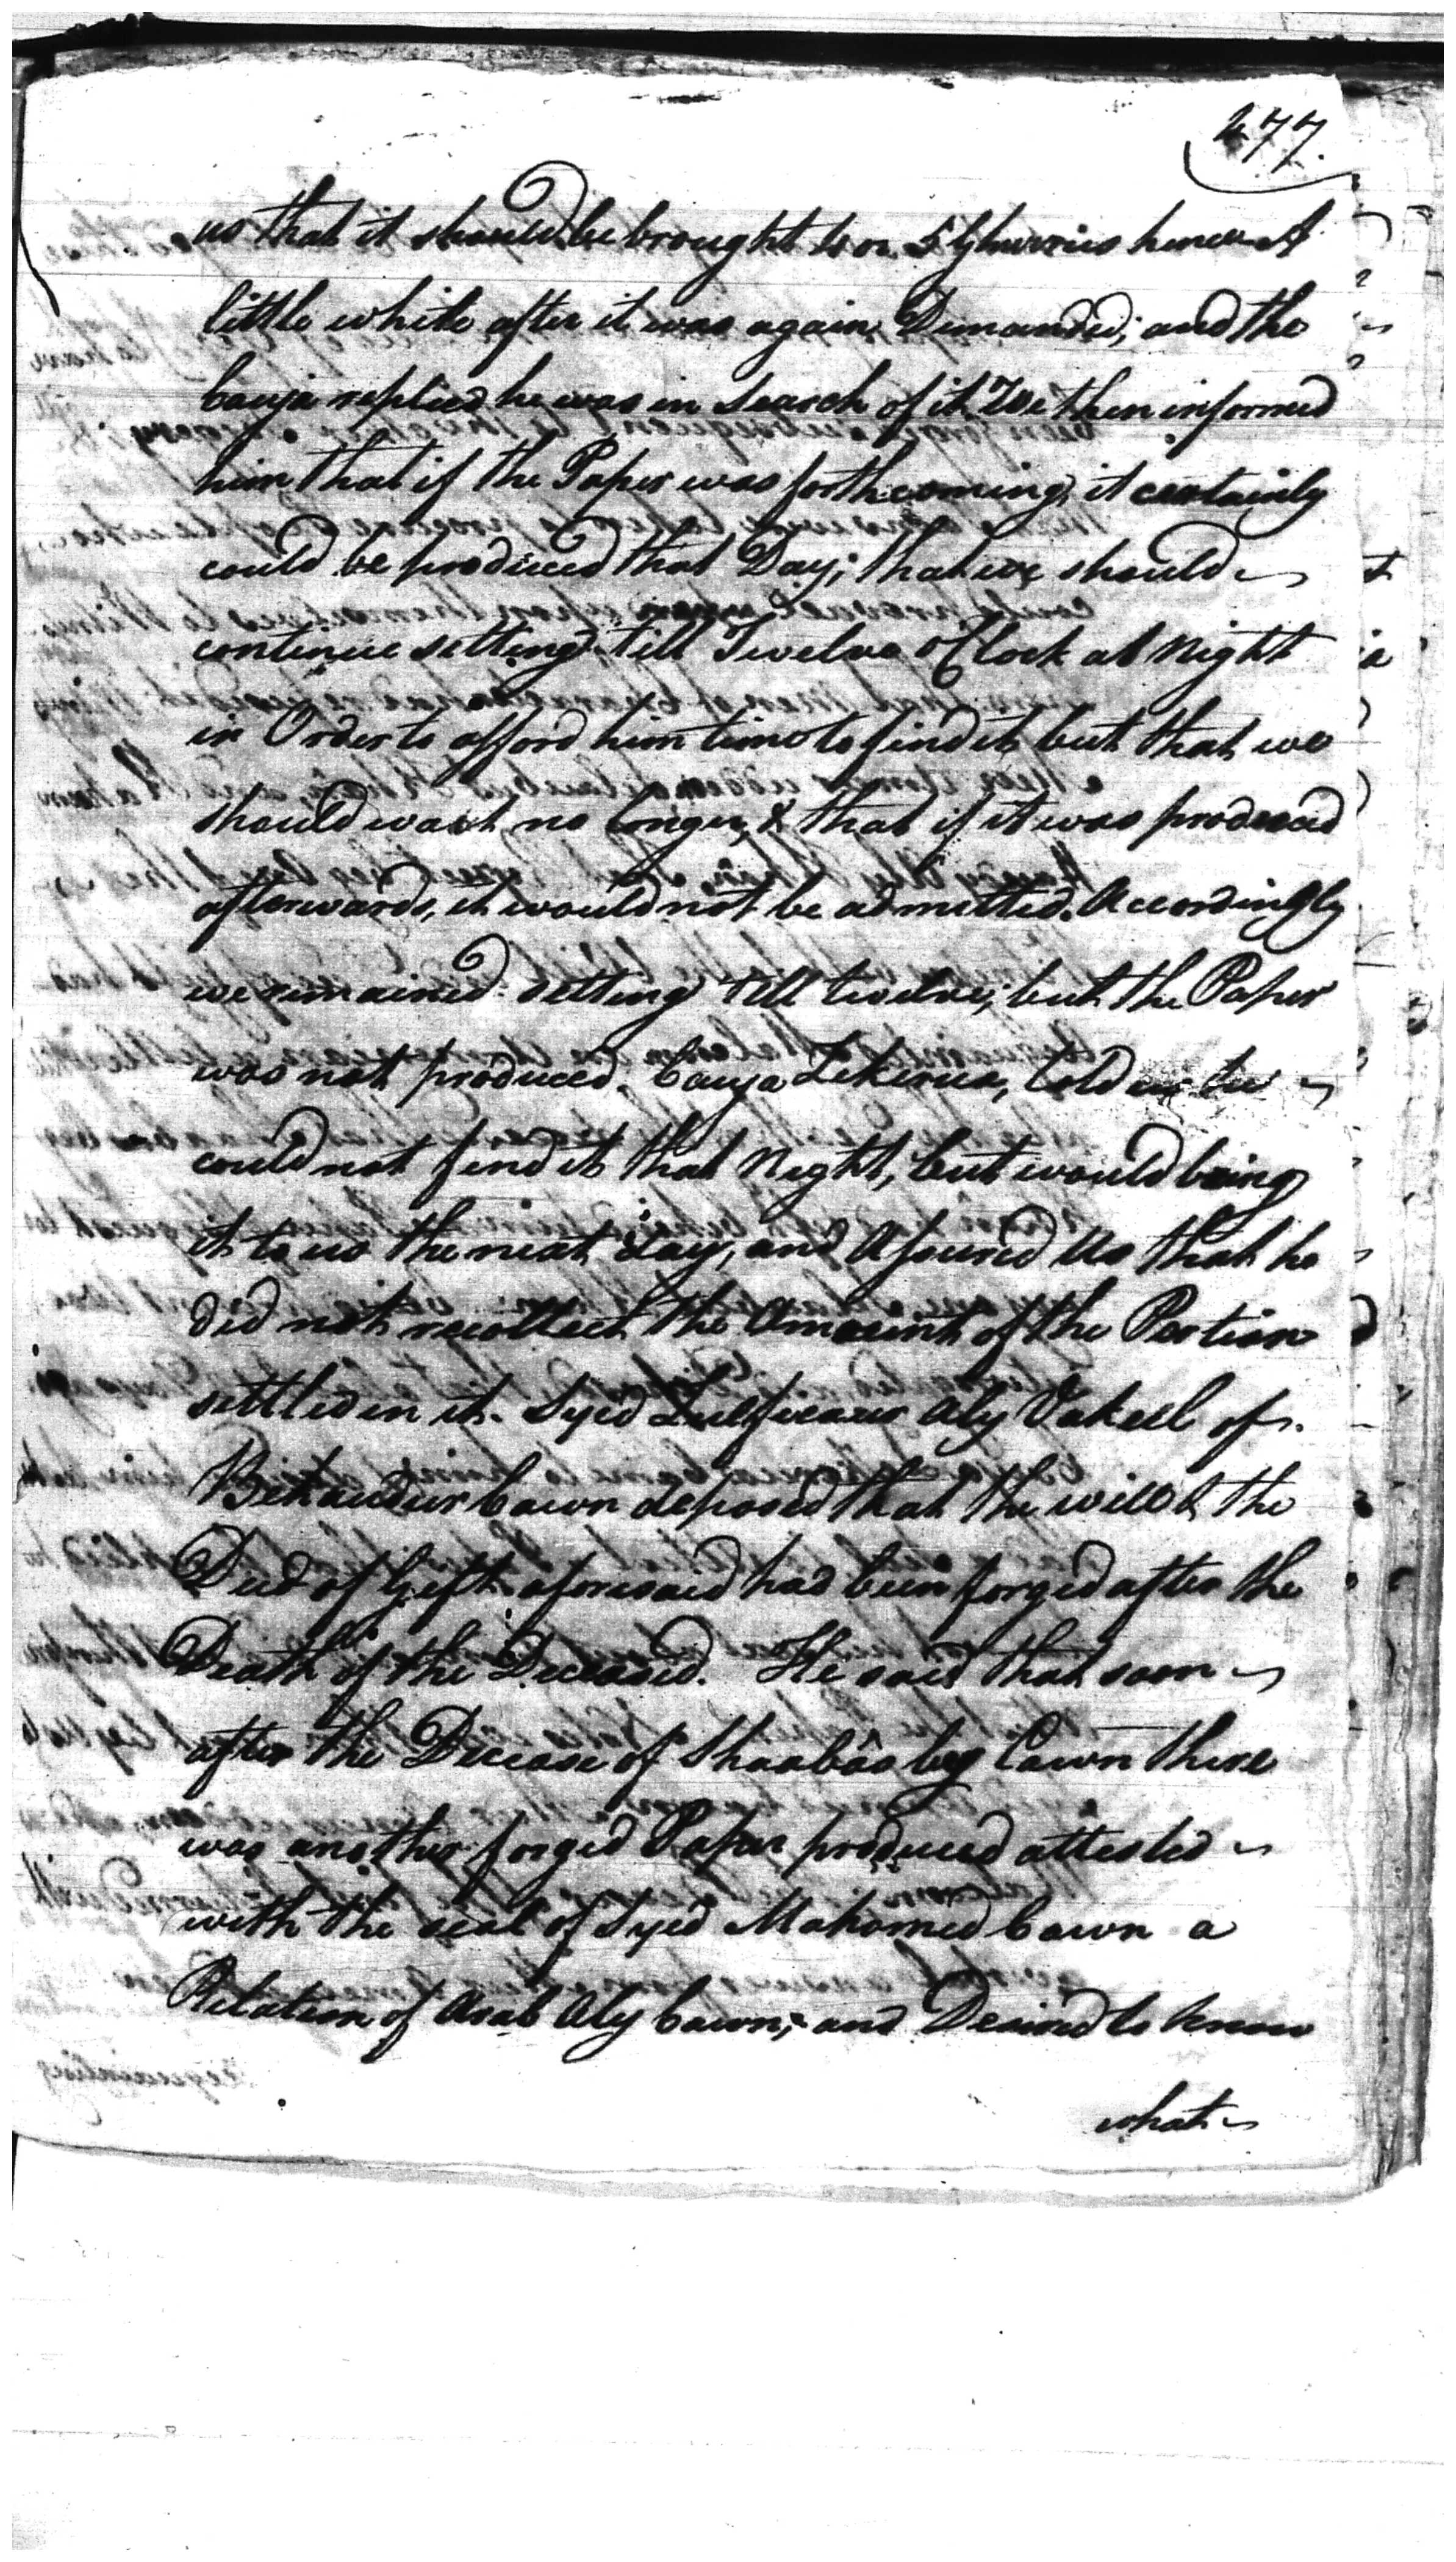 477.
us that it should be brought 4 or 5 Ghurries hence A
little while after it was again Demanded; and the
Cauja replied he was in Search of it. We then informed
him that if the Paper was forthcoming, it certainly
could be produced that Day; that we should
continue setting till Twelve o Clock at Night
in Order to afford him time to find it, but that we
should wait no longer, & that if it was produced
afterwards, it would not be admitted. Accordingly
we remained setting till twelve; but the Paper
was not produced. Cauja Zekerua, told us he
could not find it that Night, but would bring
it to us the next day, and Assured us that he
did not recollect the Amount of the Portion
settled in it. Syed Zulfucaur Aly Vakeel of
Behaudur Cawn deposed that the will & the
Deed of Gift aforesaid had been forged after the
Death of the Deceased. He said that soon
after the Decease of Shaabâs beg Cawn there
was another forged Paper produced attested
with the seal of Syed Mahomed Cawn a
Relation of Asab Aly Cawn; and Desired to know
what